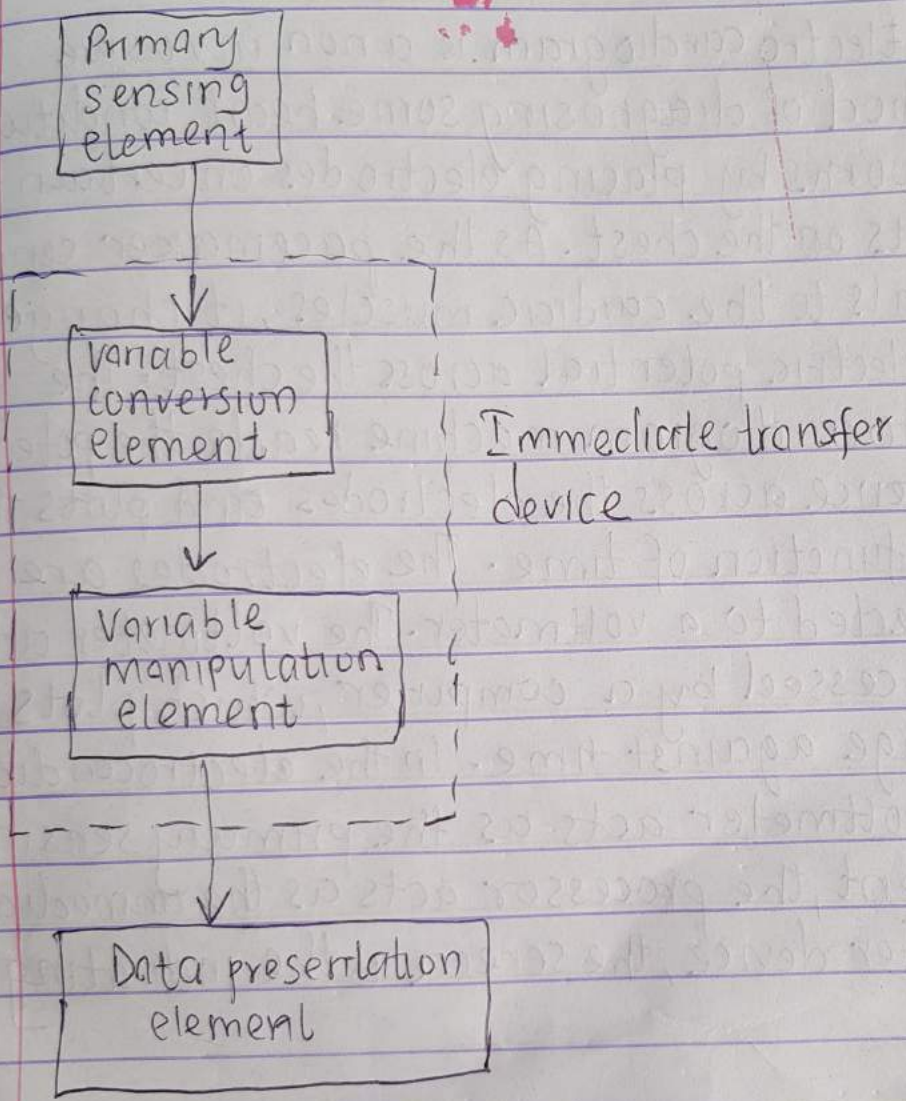 Primary
sensing
element
Variable
conversion
element
Immediate transfer
device
Variable
manipulation
element
Data presentation
element